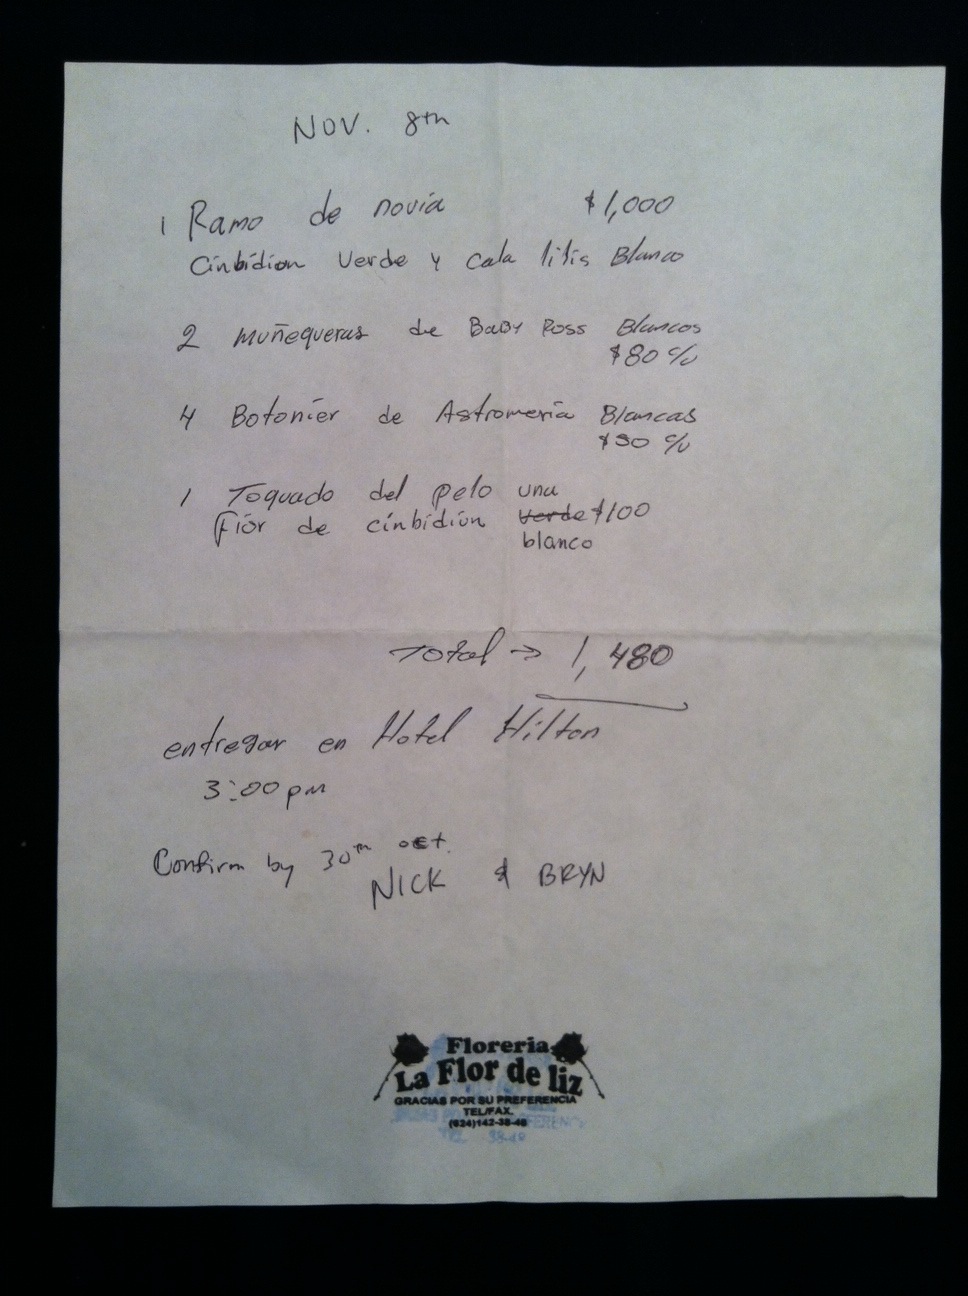 NOV. 8th
1 Ramo de novia $1,000
Cinbidion Verde y Cala lilis Blanco
2 Muñequeras de Baby Ross Blancos
$80 c/u
4 Botonier de Astromeria Blancas
$50 c/u
1 Toquado del pelo una
Flor de cinbidion verde $100
blanco
Total → 1,480
entregar en Hotel Hilton
3:00 pm
Confirm by 30th oct.
NICK & BRYN
Floreria
La Flor de liz
GRACIAS POR SU PREFERENCIA
TEL/FAX.
(624)142-38-48